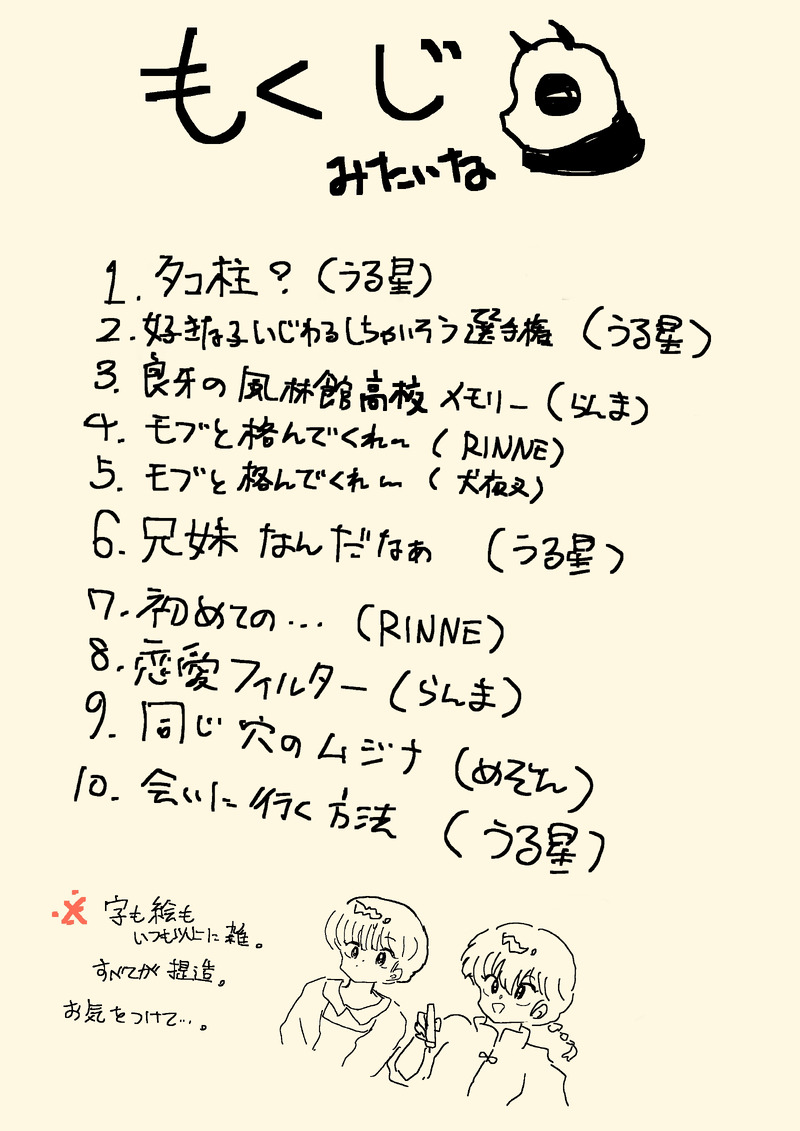 もくじ
みたいな
1. タコ柱？（うる星）
2. 好きな子いじわるしちゃいそう選手権（うる星）
3. 良牙の風林館高校メモリー（らんま）
4. モブと絡んでくれ〜（RINNE）
5. モブと絡んでくれ〜（犬夜叉）
6. 兄妹なんだなぁ（うる星）
7. 初めての…（RINNE）
8. 恋愛フィルター（らんま）
9. 同じ穴のムジナ（めぞん）
10. 会いに行く方法（うる星）
※字も絵も
いつも以上に雑。
すべてが捏造。
お気をつけて…。